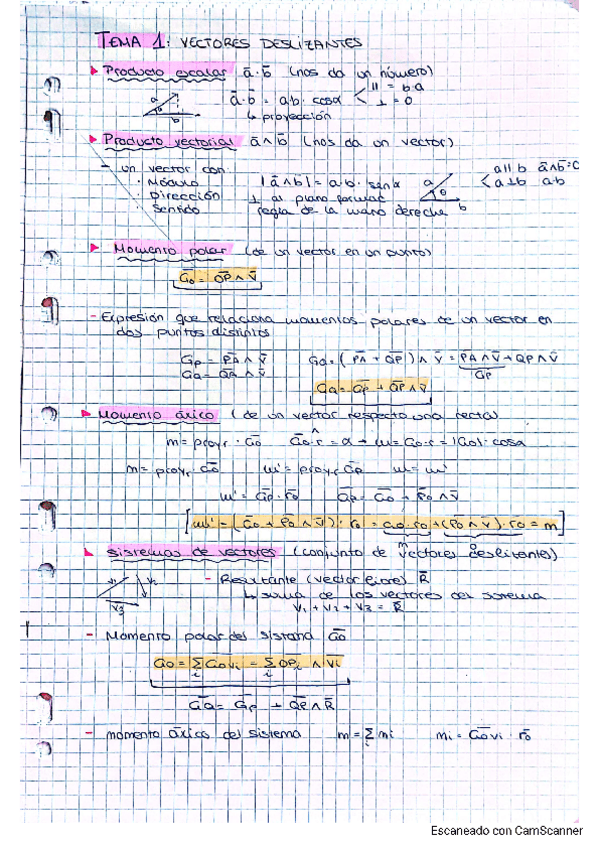 TEMA 1: VECTORES DESLIZANTES
▸ Producto escalar ā·b̄ (nos da un número)
ā·b̄ = a·b· cosα < || = b·a
⊥ = 0
↳ proyección
▸ Producto vectorial ā∧b̄ (nos da un vector)
- un vector con:
· Módulo |ā∧b̄| = a·b· senα
· Dirección ⊥ al plano formado
· Sentido regla de la mano derecha
a||b ā∧b̄=0
< a⊥b a·b
▸ Momento polar (de un vector en un punto)
Ḡo = OP̄ ∧ V̄
- Expresión que relaciona momentos polares de un vector en
dos puntos distintos
Ḡp = PĀ ∧ V̄ Ga = (PĀ + QP̄) ∧ V̄ = PA∧V̄ + QP∧V̄
Ḡa = QĀ ∧ V̄ Ḡp
Ḡa = Ḡp + QP̄∧V̄
▸ Momento áxico (de un vector respecto una recta)
m = proyr · Ḡo Ḡo·r = α → m = Go·r = |Go|· cosα
m = proyr Ḡo m' = proyr Ḡp m = m'
m' = Ḡp · r̄o Ḡp = Ḡo + P̄o∧V̄
[m' = (Ḡo + P̄o∧V̄)· r̄o = Ḡo·r̄o + (P̄o∧V̄)·r̄o = m]
m 0
▸ Sistemas de vectores (conjunto de vectores deslizantes)
- Resultante (vector libre) R̄
↳ suma de los vectores del sistema
V₁ + V₂ + V₃ = R̄
V₂
V₃
- Momento polar del sistema Ḡo
Ḡo = Σi Ḡovi = Σi OP̄i ∧ V̄i
Ḡa = Ḡp + QP̄∧R̄
- momento áxico del sistema m = Σi mi mi = Ḡovi · r̄o
Escaneado con CamScanner